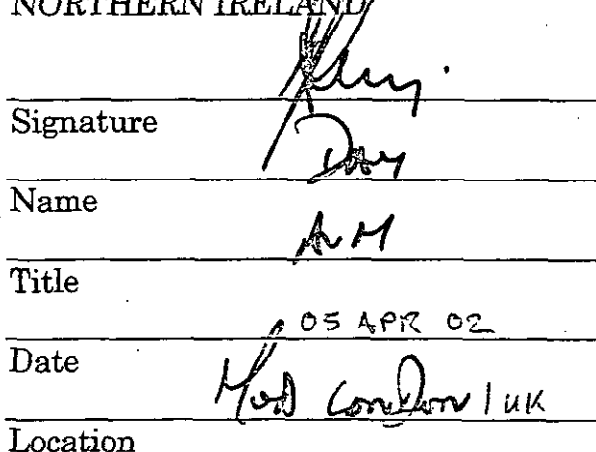 NORTHERN IRELAND
Signature
Day
Name
AVM
Title
05 APR 02
Date
MoD London / UK
Location